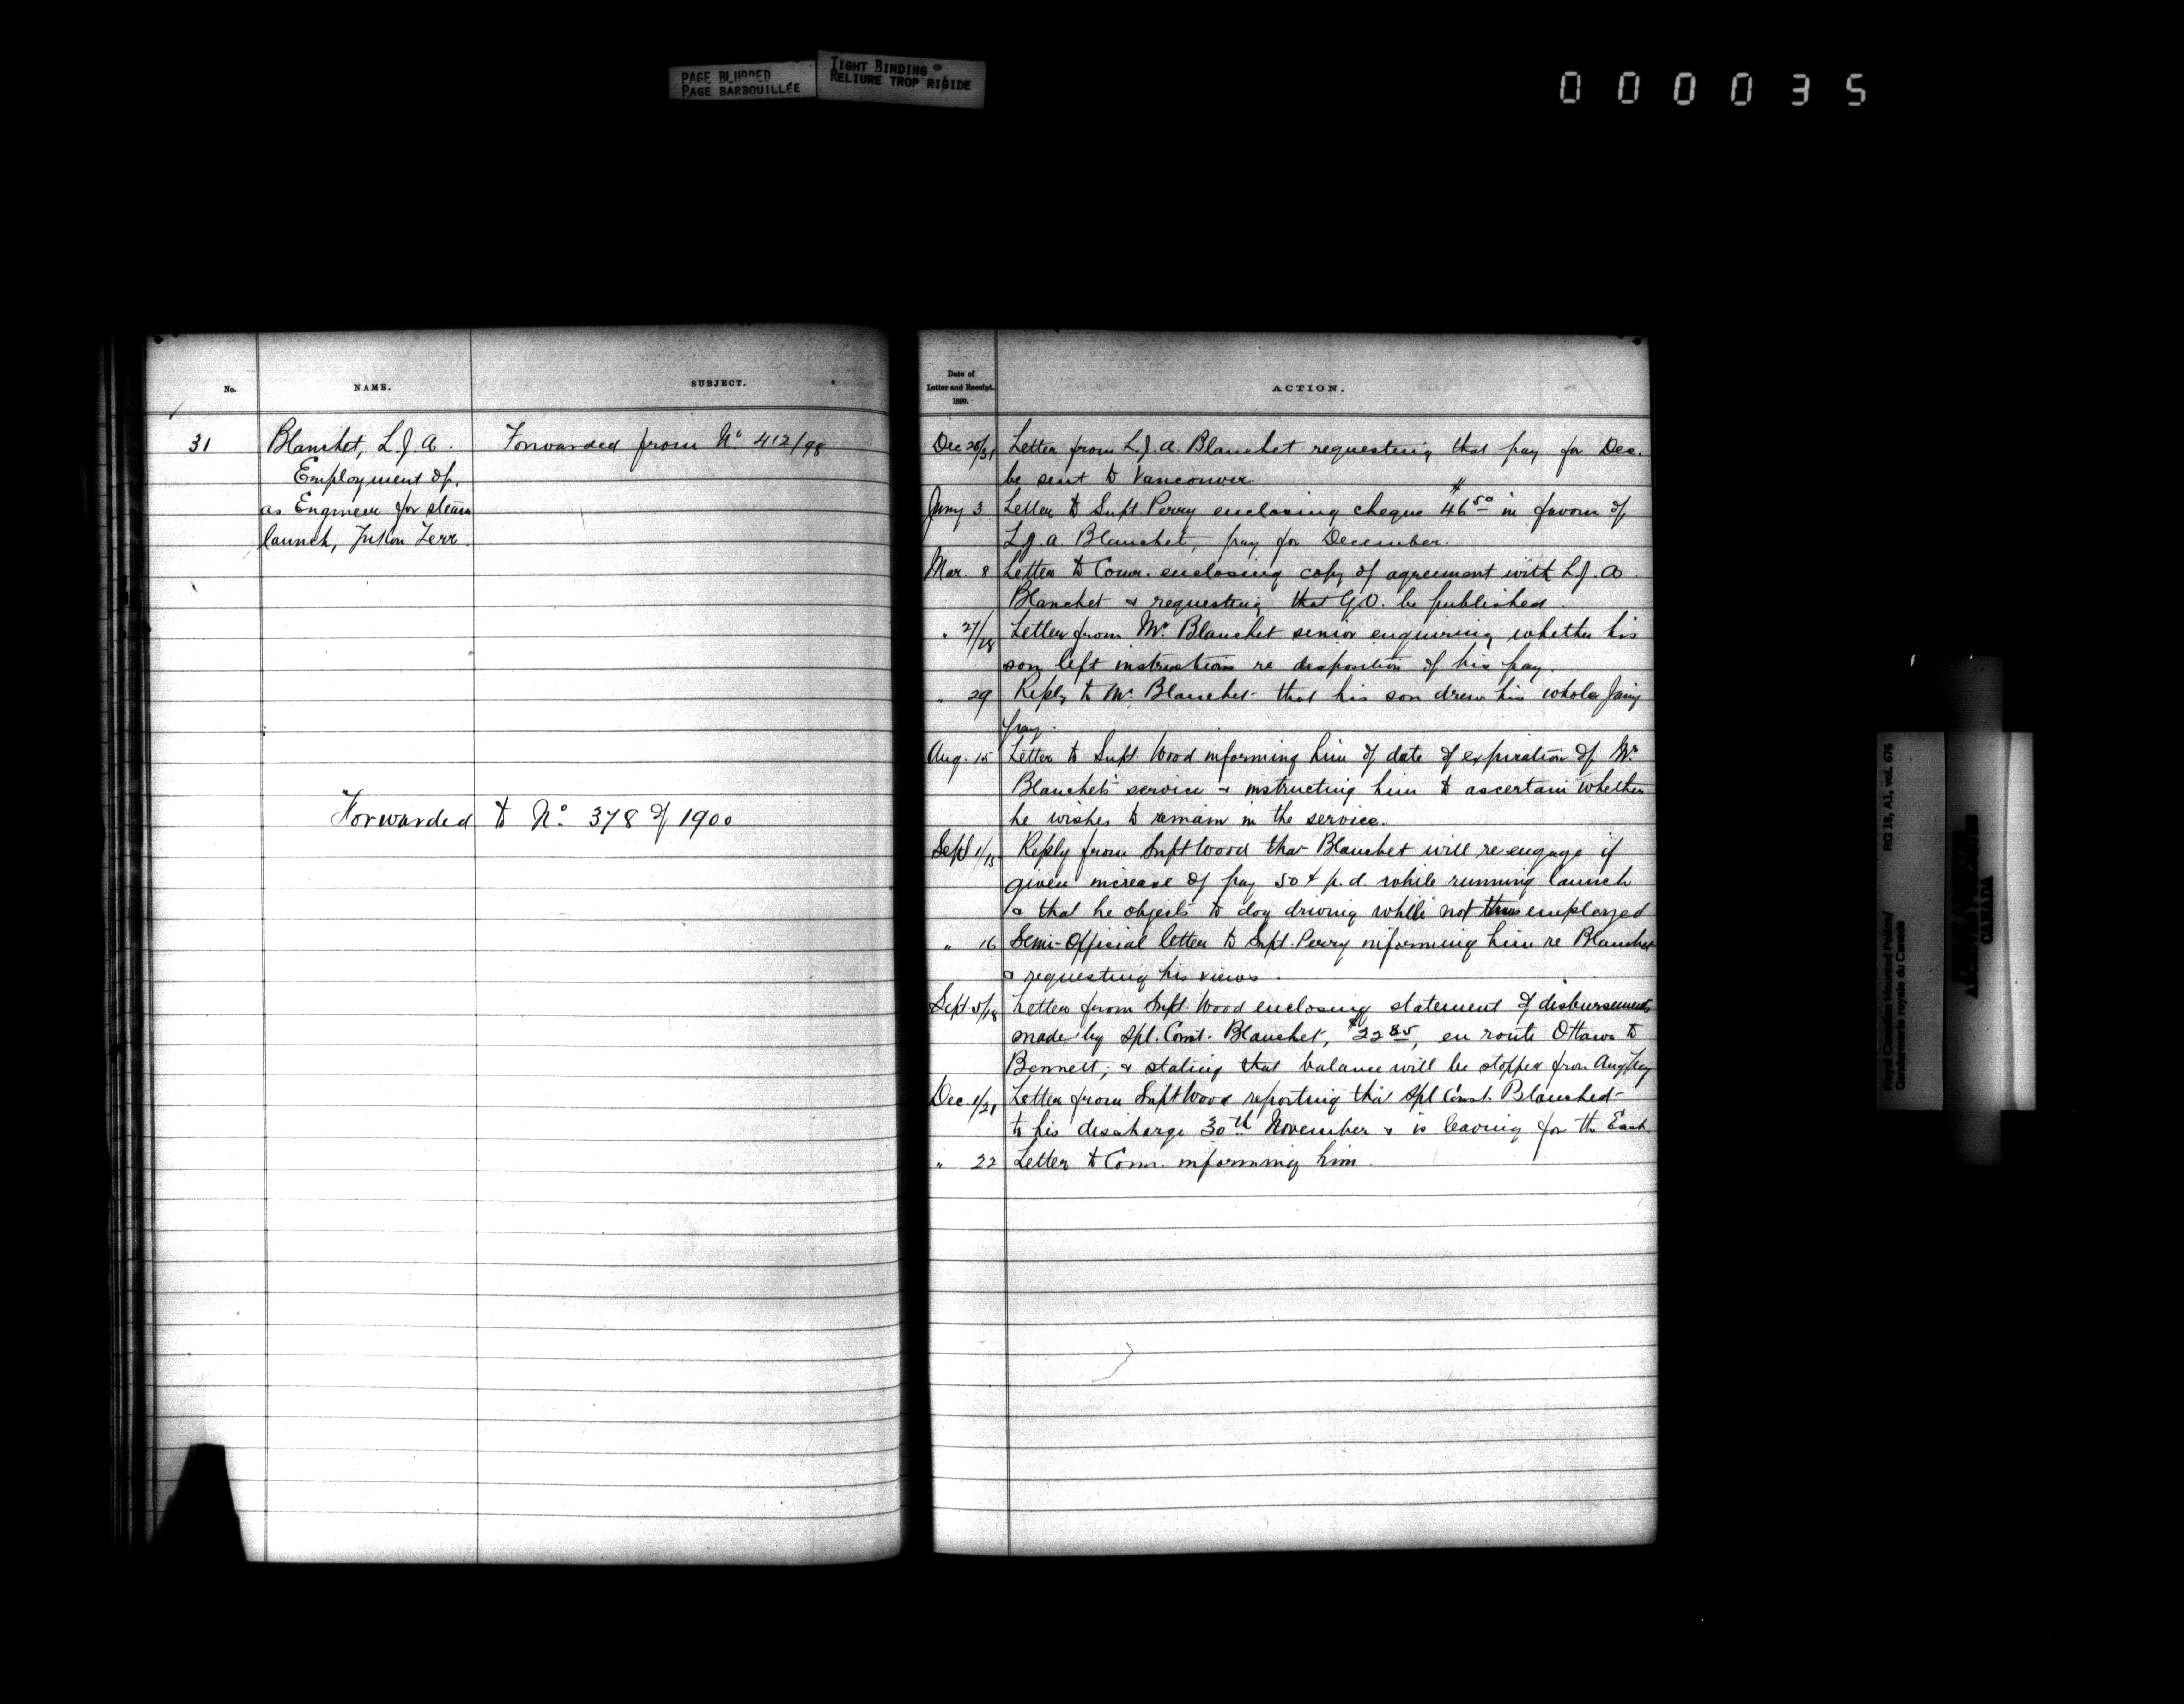 PAGE BLURRED
PAGE BARBOUILLÉE
TIGHT BINDING
RELIURE TROP RIGIDE
000035
No.
NAME.
SUBJECT.
31
Blanchet, L.J.A.
Forwarded from No. 412/98
Employment of,
as Engineer for steam
launch, Yukon Terr.
Forwarded to No. 378 of 1900
Date of
Letter and Receipt.
1899.
ACTION.
Dec 28/31 Letter from L.J.A. Blanchet requesting that pay for Dec.
be sent to Vancouver.
Jany 3 Letter to Supt. Perry enclosing cheque $46.50 in favour of
L.J.A. Blanchet, pay for December.
Mar. 8 Letter to Comr. enclosing copy of agreement with L.J.A.
Blanchet & requesting that G.O. be published.
" 27/28 Letter from Mr. Blanchet senior enquiring whether his
son left instructions re disposition of his pay.
" 29 Reply to Mr. Blanchet that his son drew his whole Jany
pay.
Aug. 15 Letter to Supt. Wood informing him of date of expiration of Mr.
Blanchet's service & instructing him to ascertain whether
he wishes to remain in the service.
Sept 1/15 Reply from Supt Wood that Blanchet will re-engage if
given increase of pay 50¢ p.d. while running launch
& that he objects to dog driving while not thus employed
" 16 Semi-Official letter to Supt. Perry informing him re Blanchet
& requesting his views.
Sept. 5/18 Letter from Supt. Wood enclosing statement of disbursements
made by Spl. Const. Blanchet, $22.85, en route Ottawa to
Bennett, & stating that balance will be stopped from Aug Pay
Dec. 1/21 Letter from Supt Wood reporting that Spl Const. Blanchet
to his discharge 30th November & is leaving for the East.
" 22 Letter to Comr. informing him.
Royal Canadian Mounted Police/
Gendarmerie royale du Canada
RG 18, A1, vol. 676
CANADA